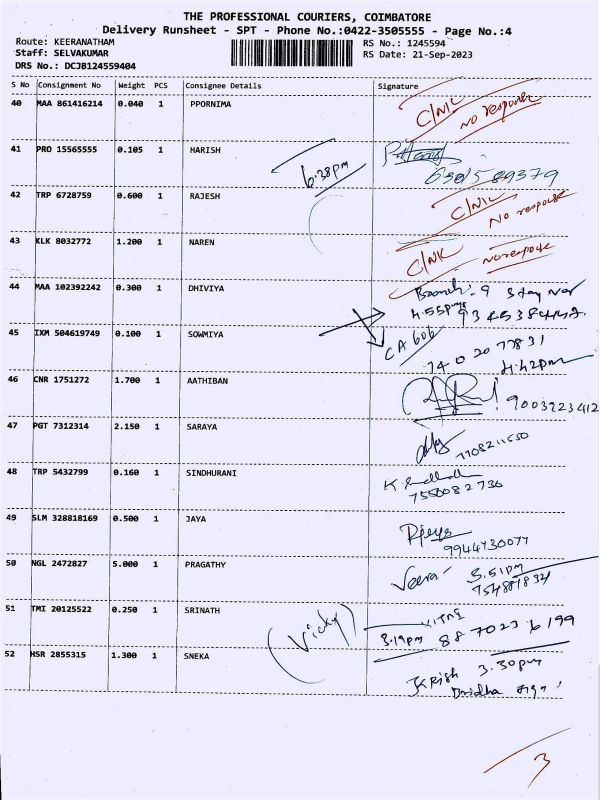 THE PROFESSIONAL COURIERS, COIMBATORE
Delivery Runsheet - SPT - Phone No.:0422-3505555 - Page No.:4
Route: KEERANATHAM RS No.: 1245594
Staff: SELVAKUMAR RS Date: 21-Sep-2023
DRS No.: DCJB124559404
S No Consignment No Weight PCS Consignee Details Signature
40 MAA 861416214 0.040 1 PPORNIMA C/NIL No response
41 PRO 15565555 0.105 1 HARISH 6:38pm
42 TRP 6728759 0.600 1 RAJESH C/NIL No response
43 KLK 8032772 1.200 1 NAREN No response
44 MAA 102392242 0.300 1 DHIVIYA 4.55pm
45 IXM 504619749 0.100 1 SOWMIYA 4:42pm
46 CNR 1751272 1.700 1 AATHIBAN 9003223412
47 PGT 7312314 2.150 1 SARAYA
48 TRP 5432799 0.160 1 SINDHURANI 7550082736
49 SLM 328818169 0.500 1 JAYA 9944730077
50 NGL 2472827 5.000 1 PRAGATHY Veera 3.51pm
51 TMI 20125522 0.250 1 SRINATH (Vicky) 3.19pm 8870236199
52 HSR 2855315 1.300 1 SNEKA Krish 3.30pm
3